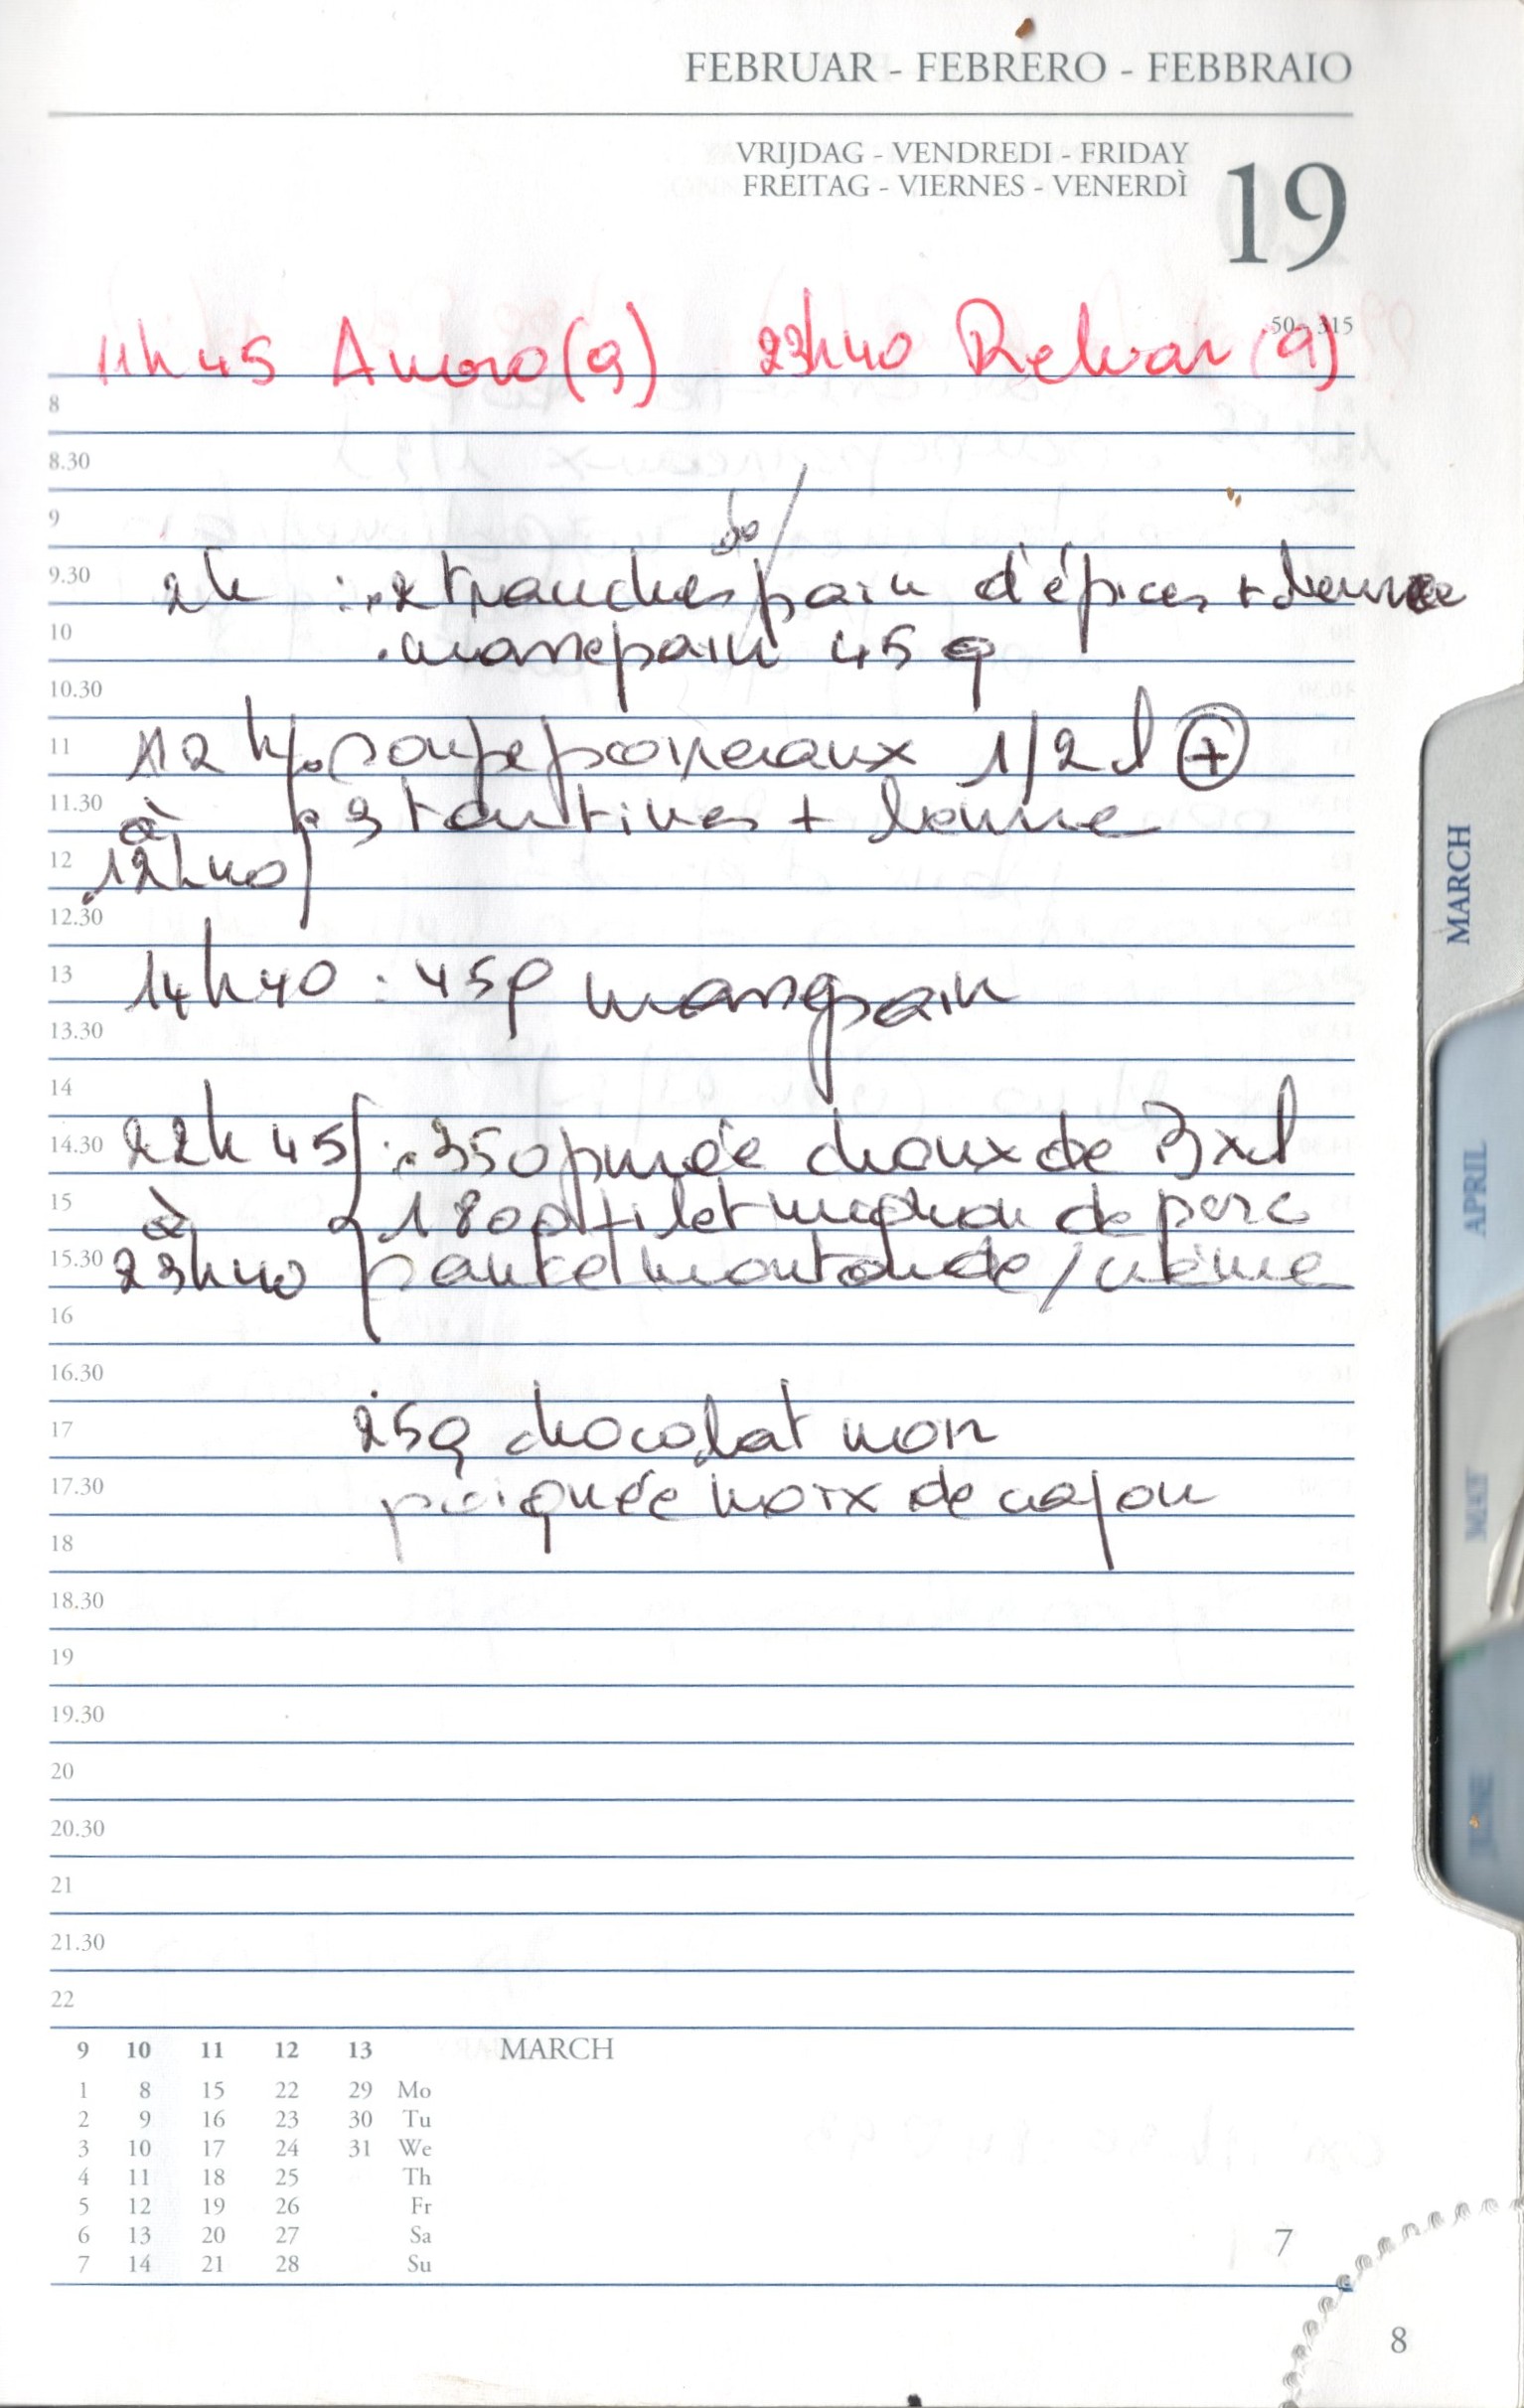 FEBRUAR - FEBRERO - FEBBRAIO
VRIJDAG - VENDREDI - FRIDAY
FREITAG - VIERNES - VENERDÌ
19
50 - 315
11h45 (9) 23h40 (9)
8
8.30
9
de
9.30 2h : . 2 tranches / pain d'épices + beurre
10 . massepain 45 g
10.30
11 12h . soupe poireaux 1/2 l +
11.30 à . 3 tartines + beurre
12 12h40
12.30
13 14h40 : 45g massepain
13.30
14
14.30 22h45 : . 350 purée choux de Bxl
15 à 180g filet mignon de porc
15.30 23h40 sauce moutarde / crème
16
16.30
17 25g chocolat noir
17.30 poignée noix de cajou
18
18.30
19
19.30
20
20.30
21
21.30
22
9 10 11 12 13 MARCH
1 8 15 22 29 Mo
2 9 16 23 30 Tu
3 10 17 24 31 We
4 11 18 25 Th
5 12 19 26 Fr
6 13 20 27 Sa
7 14 21 28 Su
7
8
MARCH
APRIL
MAY
JUNE